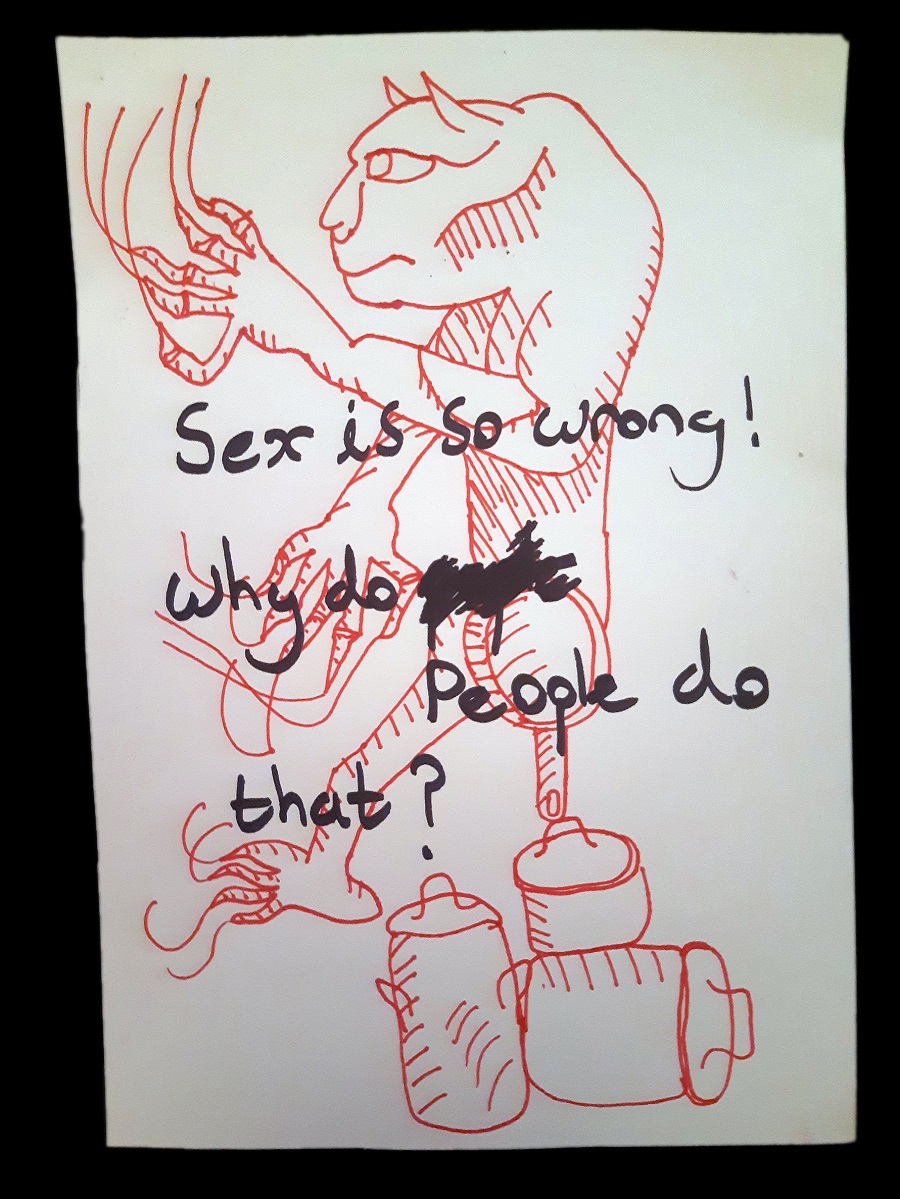 Sex is so wrong!
why do
People do
that?